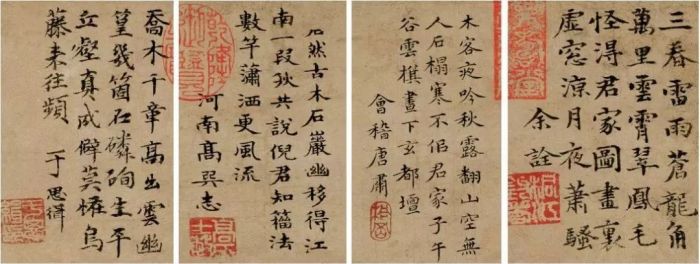 三春雷雨蒼龍角
萬里雲霄翠鳳毛
怪得君家圖畫裏
虛窓涼月夜蕭騷
余詮
木客夜吟秋露翻山空無
人石榻寒不侣君家子午
谷雲棋晝下玄都壇
會稽唐肅
居然古木石巖幽移得江
南一段秋共說倪君知籀法
數竿蕭洒更風流
河南高巽志
喬木千章高出雲幽
篁幾箇石磷珣生平
丘壑真成僻莫怪烏
藤來往頻
于思緝